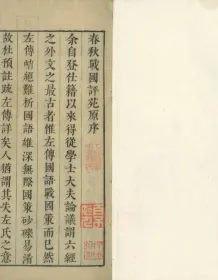 春秋戰國評苑原序
余自登仕籍以來得從學士大夫論議謂六經
之外文之最古者惟左傳國語戰國策而已然
左傳峭絕難折國語雄深無際國策砂礫易淆
故杜預註疏左傳詳矣人猶謂其失左氏之意